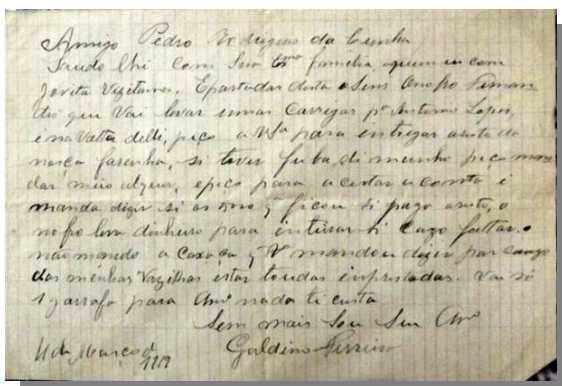 Amigo Pedro Rodrigues da Cunha
Saudo lhi com Sua Exma familia quem eu com
Jovita Vizetamos. E portador desta o Senr Onofro Fernan
dis que Vai levar umas Cargas pa Antonio Lopes,
e na Volta delle, peço a VSa para entregar a resto da
nossa farinha, si tiver fuba di muinho peço man
dar meio alquer, e peço para acertar a conta i
manda dizer si as ficou ti pago a resto, o
nofro leva dinheiro para inteirar ti cazo faltar. o
não mando a Caxaça q V mandou dizer par cauzo
das minhas Vazilhas estar toudas inprestadas. Vai só
1 garrafa para Amo nada ti custa
Sem mais Sou Seu Amo
Galdino Ferreira
11 de Março d 1919